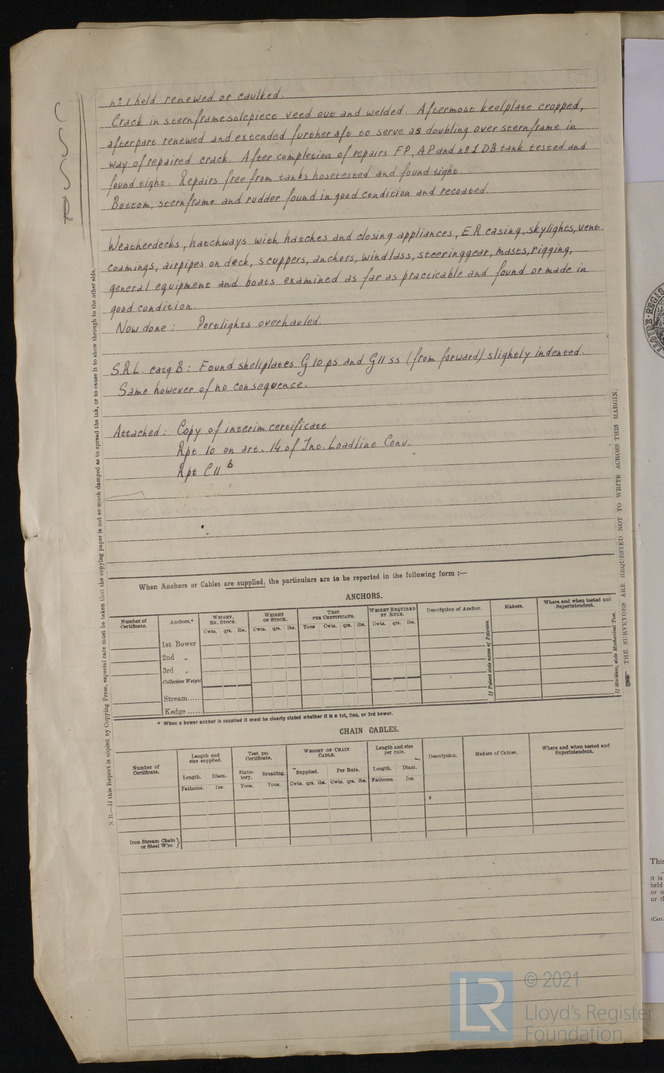 C
S
S
R
no 1 hold renewed or caulked.
Crack in sternframe solepiece veed out and welded. Aftermost keelplate cropped,
afterpart renewed and extended further aft to serve as doubling over sternframe in
way of repaired crack. After completion of repairs FP, AP and no 1 DB tank tested and
found tight. Repairs free from tanks hosetested and found tight.
Bottom, sternframe and rudder found in good condition and recoated.
Weatherdecks, hatchways with hatches and closing appliances, ER casing, skylights, vent
coamings, airpipes on deck, scuppers, anchors, windlass, steeringgear, masts, rigging,
general equipment and boats examined as far as practicable and found or made in
good condition.
Now done: Portlights overhauled.
S.R.L. catg B: Found shellplates G 10 ps and G 11 ss (from forward) slightly indented.
Same however of no consequence.
Attached: Copy of interim certificate
Rpt 10 on art. 14 of Int. Loadline Conv.
Rpt C 11 b
N.B.—If this Report is copied by Copying Press, especial care must be taken that the copying paper is not so much damped as to spread the ink, or to cause it to show through to the other side.
THE SURVEYORS ARE REQUESTED NOT TO WRITE ACROSS THIS MARGIN.
When Anchors or Cables are supplied, the particulars are to be reported in the following form:—
ANCHORS.
Number of Certificate. Anchors.* WEIGHT, EX. STOCK. WEIGHT OF STOCK. TEST PER CERTIFICATE. WEIGHT REQUIRED BY RULE. Description of Anchor. Makers. Where and when tested and Superintendent.
Cwts. qrs. lbs. Cwts. qrs. lbs. Tons Cwts. qrs. lbs. Cwts. qrs. lbs.
1st Bower
2nd „
3rd „
Collective Weight
Stream.....
Kedge.....
* When a bower anchor is supplied it must be clearly stated whether it is a 1st, 2nd, or 3rd bower.
CHAIN CABLES.
Number of Certificate. Length and size supplied. Test per Certificate. WEIGHT OF CHAIN CABLE. Length and size per rule. Description. Makers of Cables. Where and when tested and Superintendent.
Length. Diam. Statutory. Breaking. Supplied. Per Rule. Length. Diam.
Fathoms. Ins. Tons. Tons. Cwts. qrs. lbs. Cwts. qrs. lbs. Fathoms. Ins.
Iron Stream Chain or Steel Wire }
This
it is
held
or
or th
(Cert.
LR
© 2021
Lloyd's Register
Foundation